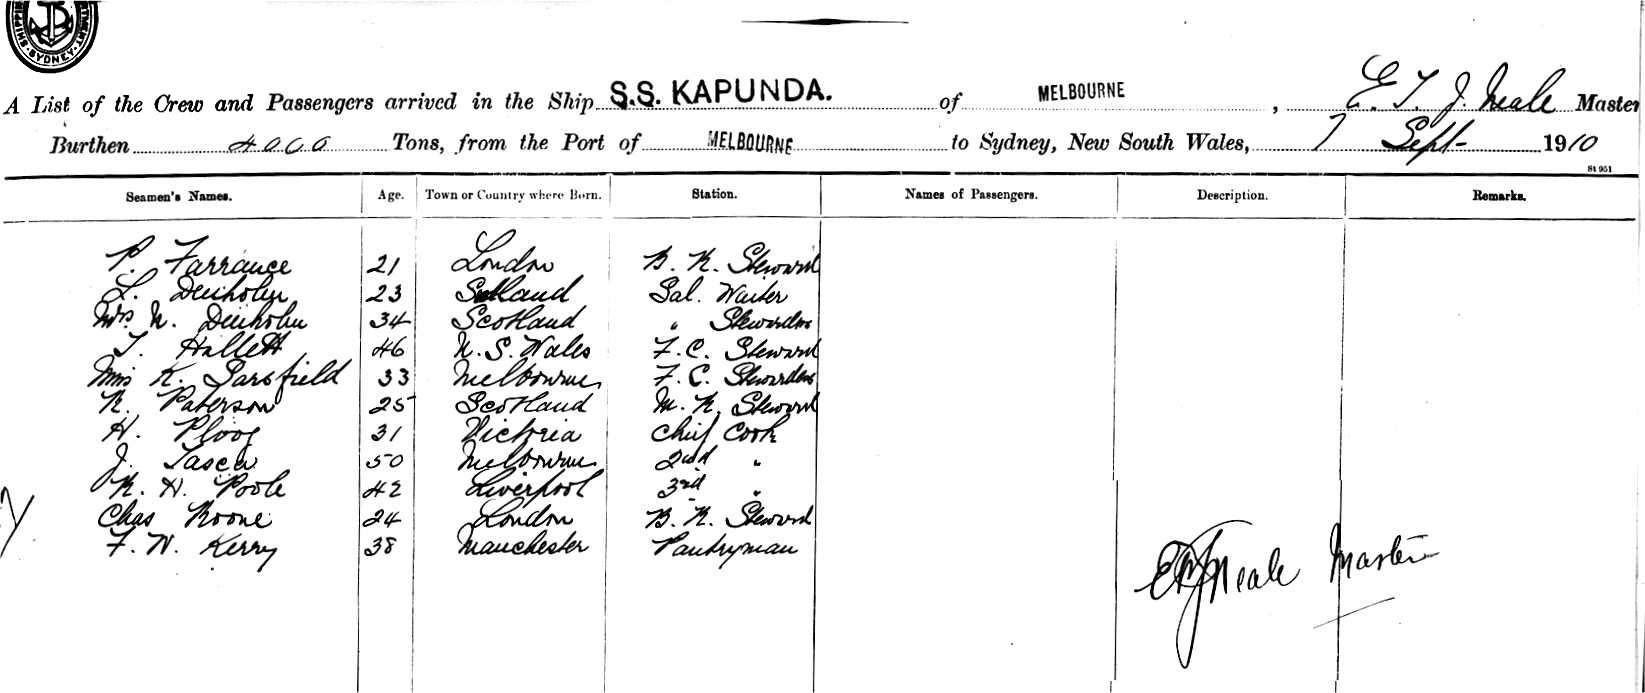 SYDNEY
A List of the Crew and Passengers arrived in the Ship S.S. KAPUNDA. of MELBOURNE, E. T. J. Neale Master
Burthen Tons, from the Port of MELBOURNE to Sydney, New South Wales, 7 Sept 1910
St 951
Seamen's Names. Age. Town or Country where Born. Station. Names of Passengers. Description. Remarks.
P. Farrance 21 London B. R. Steward
L. Denholm 23 Scotland Sal. Waiter
Mrs N. Denholm 34 Scotland " Stewardess
T. Hallett 46 N. S. Wales F. C. Steward
Miss K. Sarsfield 33 Melbourne F. C. Stewardess
R. Paterson 25 Scotland M. R. Steward
H. Ploog 31 Victoria Chief Cook
J. Tasca 50 Melbourne 2nd "
R. H. Poole 42 Liverpool 3rd "
Chas Boone 24 London B. R. Steward
F. W. Kerry 38 Manchester Pantryman
ETJ Neale Master